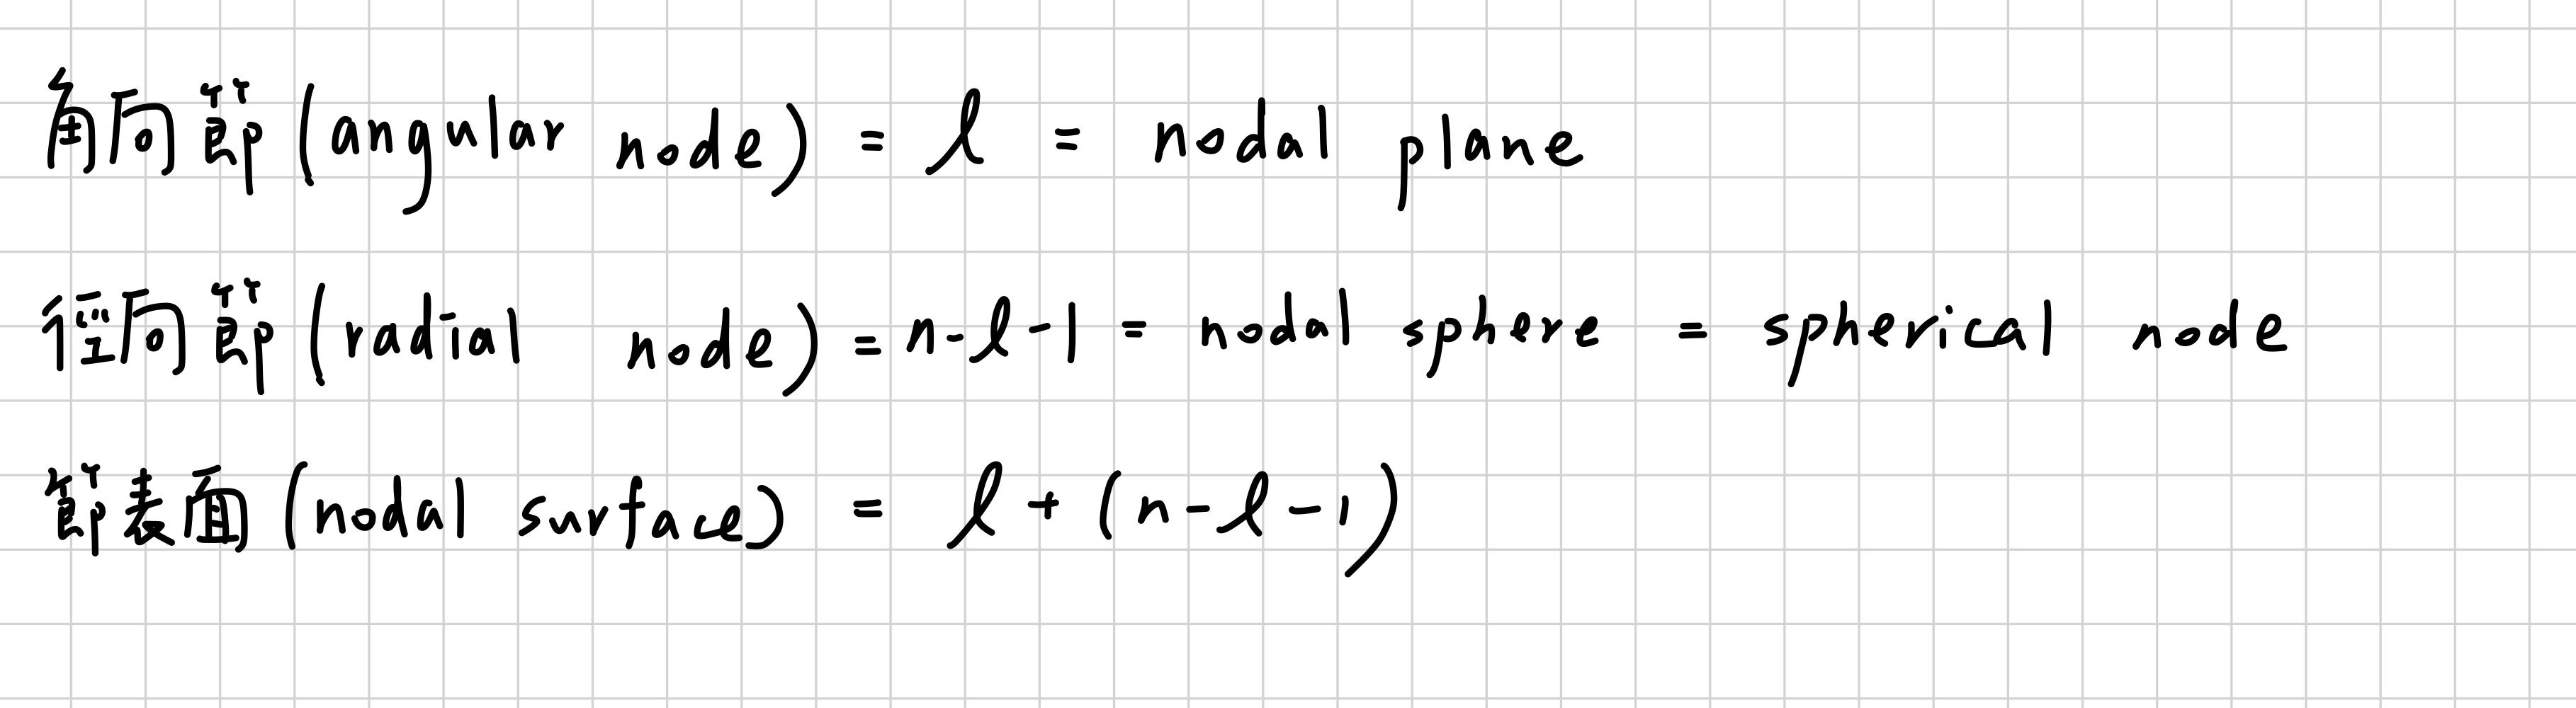 角向節(angular node) = l = nodal plane
徑向節(radial node) = n-l-1 = nodal sphere = spherical node
節表面(nodal surface) = l + (n-l-1)